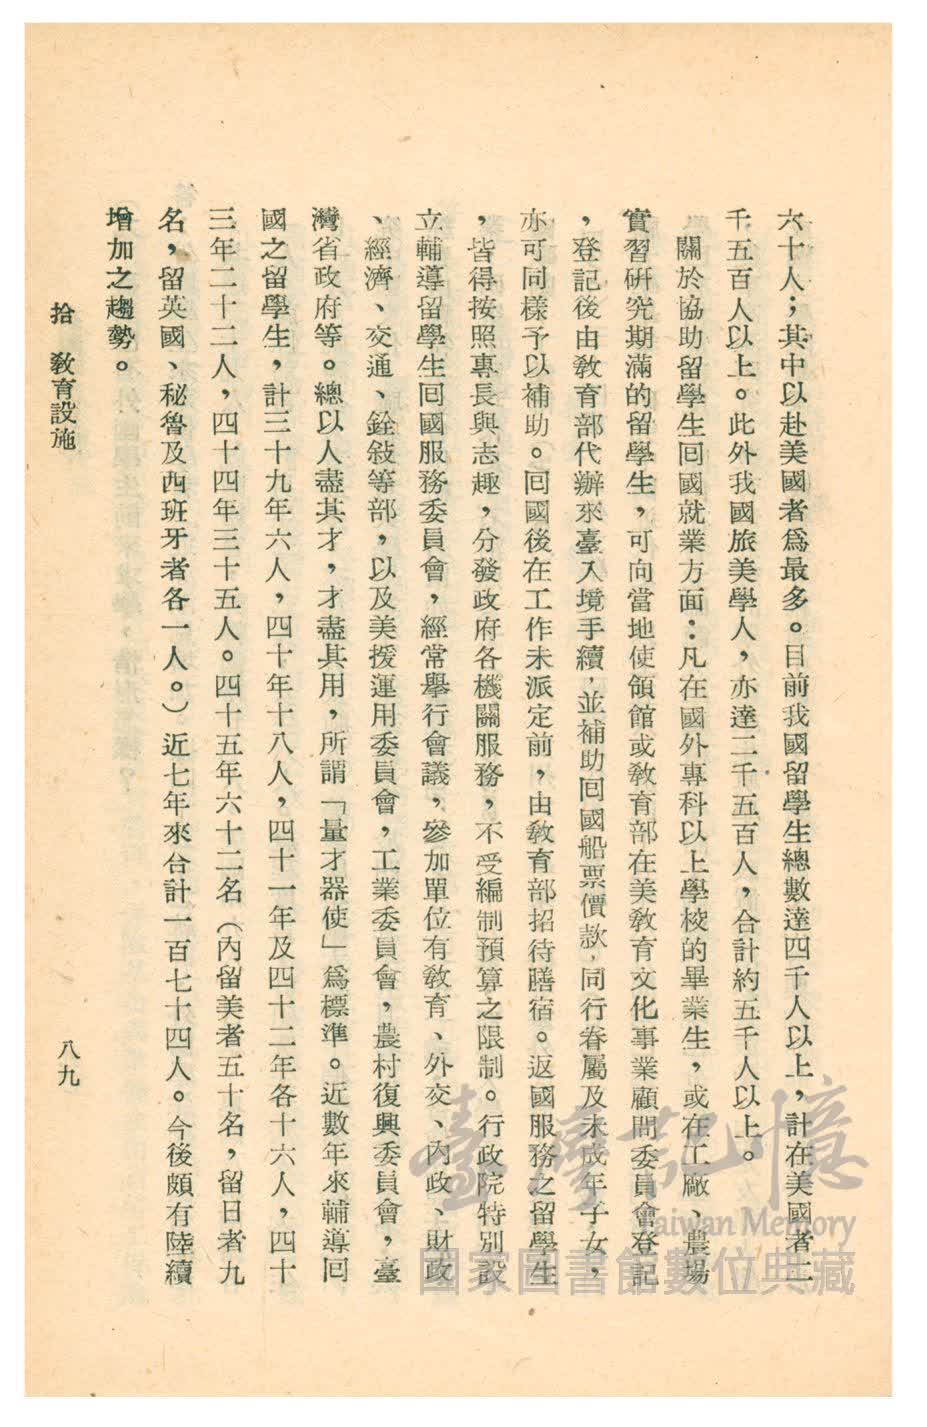 六十人；其中以赴美國者爲最多。目前我國留學生總數達四千人以上，計在美國者二
千五百人以上。此外我國旅美學人，亦達二千五百人，合計約五千人以上。
關於協助留學生回國就業方面：凡在國外專科以上學校的畢業生，或在工廠、農場
實習研究期滿的留學生，可向當地使領館或教育部在美教育文化事業顧問委員會登記
，登記後由教育部代辦來臺入境手續，並補助回國船票價款，同行眷屬及未成年子女，
亦可同樣予以補助。回國後在工作未派定前，由教育部招待膳宿。返國服務之留學生
，皆得按照專長與志趣，分發政府各機關服務，不受編制預算之限制。行政院特別設
立輔導留學生回國服務委員會，經常舉行會議，參加單位有教育、外交、內政、財政
、經濟、交通、銓敍等部，以及美援運用委員會，工業委員會，農村復興委員會，臺
灣省政府等。總以人盡其才，才盡其用，所謂「量才器使」爲標準。近數年來輔導回
國之留學生，計三十九年六人，四十年十八人，四十一年及四十二年各十六人，四十
三年二十二人，四十四年三十五人。四十五年六十二名（內留美者五十名，留日者九
名，留英國、秘魯及西班牙者各一人。）近七年來合計一百七十四人。今後頗有陸續
增加之趨勢。
拾　教育設施
八九
臺灣記憶
Taiwan Memory
國家圖書館數位典藏